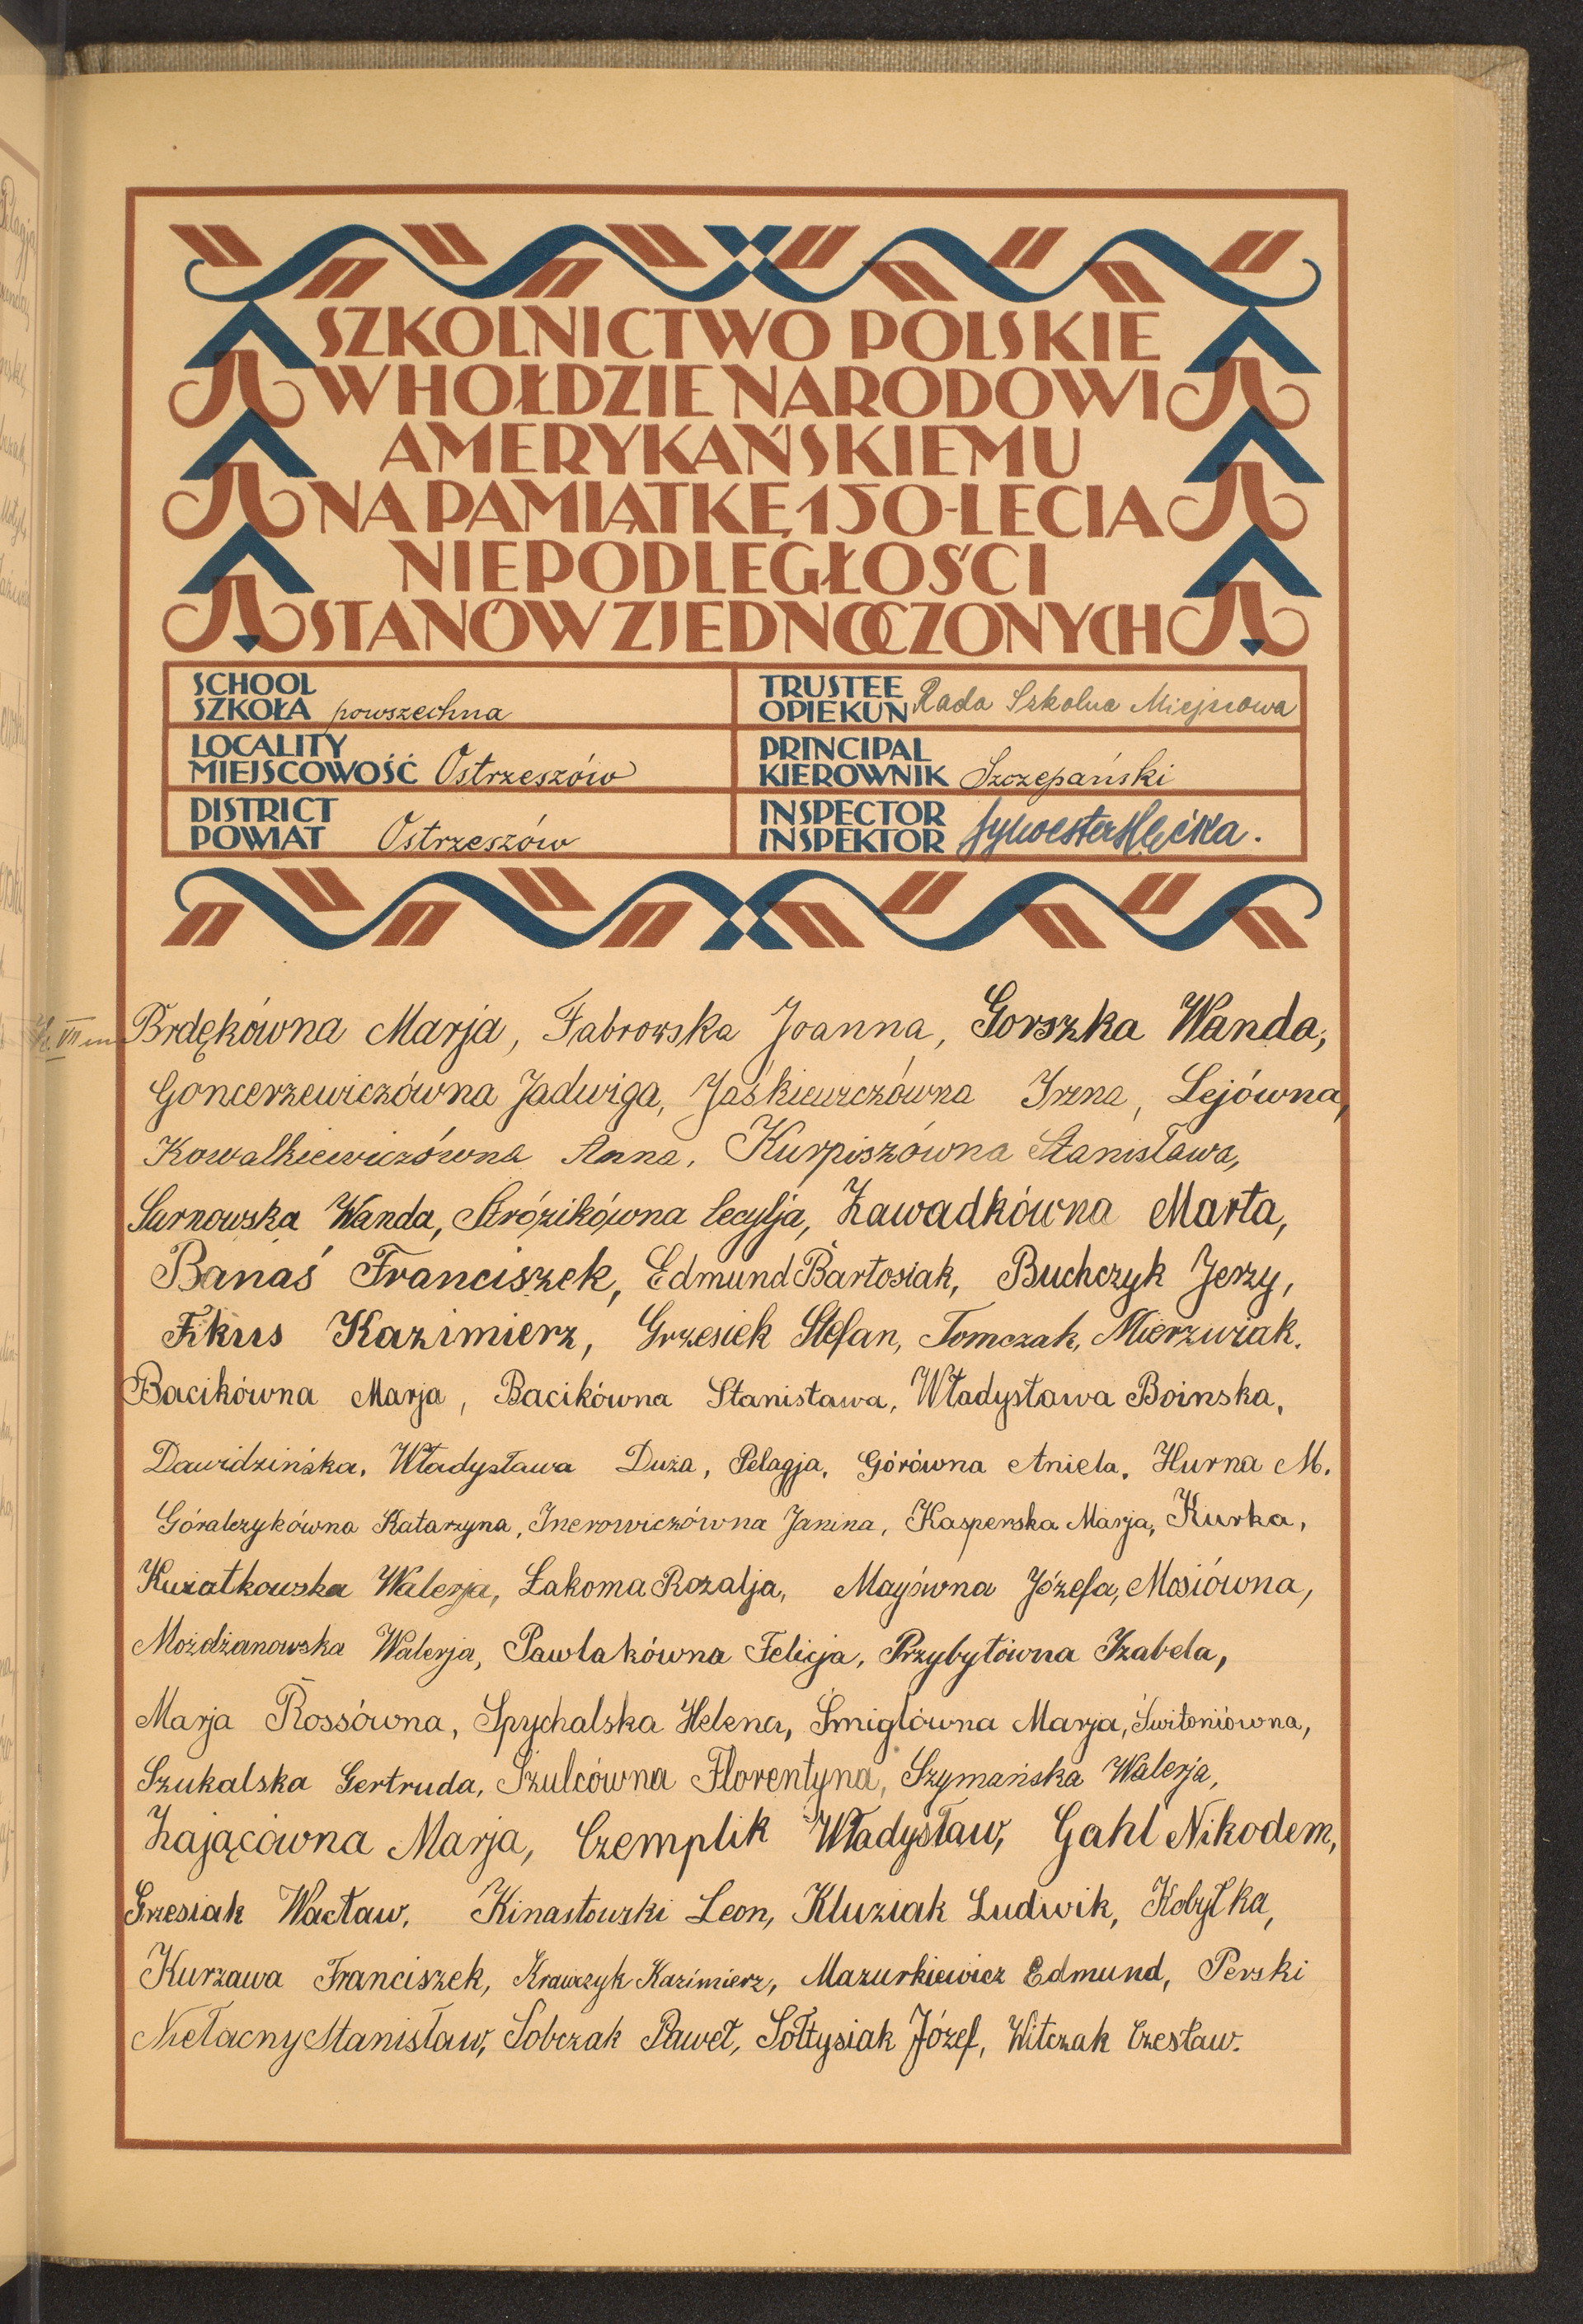 SZKOLNICTWO POLSKIE
W HOŁDZIE NARODOWI
AMERYKAŃSKIEMU
NA PAMIĄTKĘ 150-LECIA
NIEPODLEGŁOŚCI
STANÓW ZJEDNOCZONYCH
SCHOOL
SZKOŁA powszechna
TRUSTEE
OPIEKUN Rada Szkolna Miejscowa
LOCALITY
MIEJSCOWOŚĆ Ostrzeszów
PRINCIPAL
KIEROWNIK Szczepański
DISTRICT
POWIAT Ostrzeszów
INSPECTOR
INSPEKTOR Sylwester
Brdękówna Marja, Fabrowska Joanna, Gorszka Wanda,
Goncerzewiczówna Jadwiga, Jaśkiewiczówna Irena, Lejówna,
Kowalkiewiczówna Anna, Kurpiszówna Stanisława,
Sarnowska Wanda, Stróżikówna Cecylja, Zawadkówna Marta,
Banaś Franciszek, Edmund Bartosiak, Buchczyk Jerzy,
Fikus Kazimierz, Grzesiek Stefan, Tomczak, Mierzwiak.
Bacikówna Marja, Bacikówna Stanisława, Władysława Boinska,
Dawidzińska, Władysława Duża, Pelagja, Górówna Aniela, Hurna M.
Góralczykówna Katarzyna, Inerowiczówna Janina, Kasperska Marja, Kurka,
Kwiatkowska Walerja, Łakoma Rozalja, Mayówna Józefa, Mosiówna,
Możdżanowska Walerja, Pawlakówna Felicja, Przybyłówna Izabela,
Marja Rossówna, Spychalska Helena, Śmigłówna Marja, Świtoniówna,
Szukalska Gertruda, Szulcówna Florentyna, Szymańska Walerja,
Zającówna Marja, Czemplik Władysław, Gahl Nikodem,
Grzesiak Wacław, Kinastowski Leon, Kluziak Ludwik, Kobyłka,
Kurzawa Franciszek, Krawczyk Kazimierz, Mazurkiewicz Edmund, Perski
Niełacny Stanisław, Sobczak Paweł, Sołtysiak Józef, Witczak Czesław.